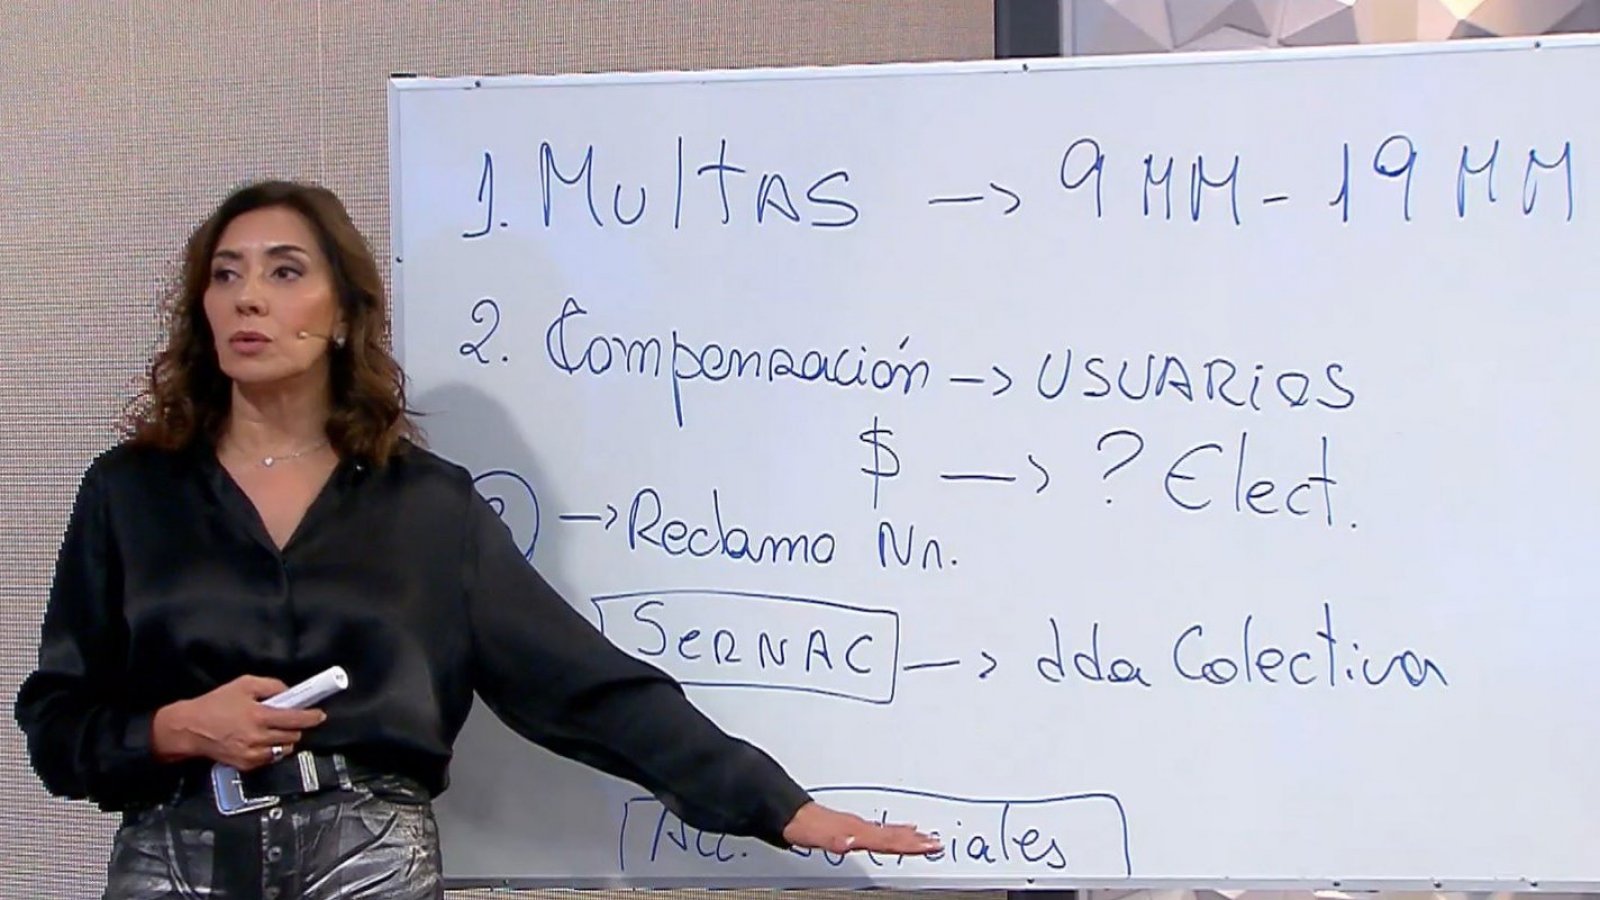 1. MultAS → 9 MM - 19 MM
2. Compensación → USUARiOS
$ → ? Elect.
→ Reclamo Nn.
SeRNAC → dda Colectiva
Acc. Judiciales